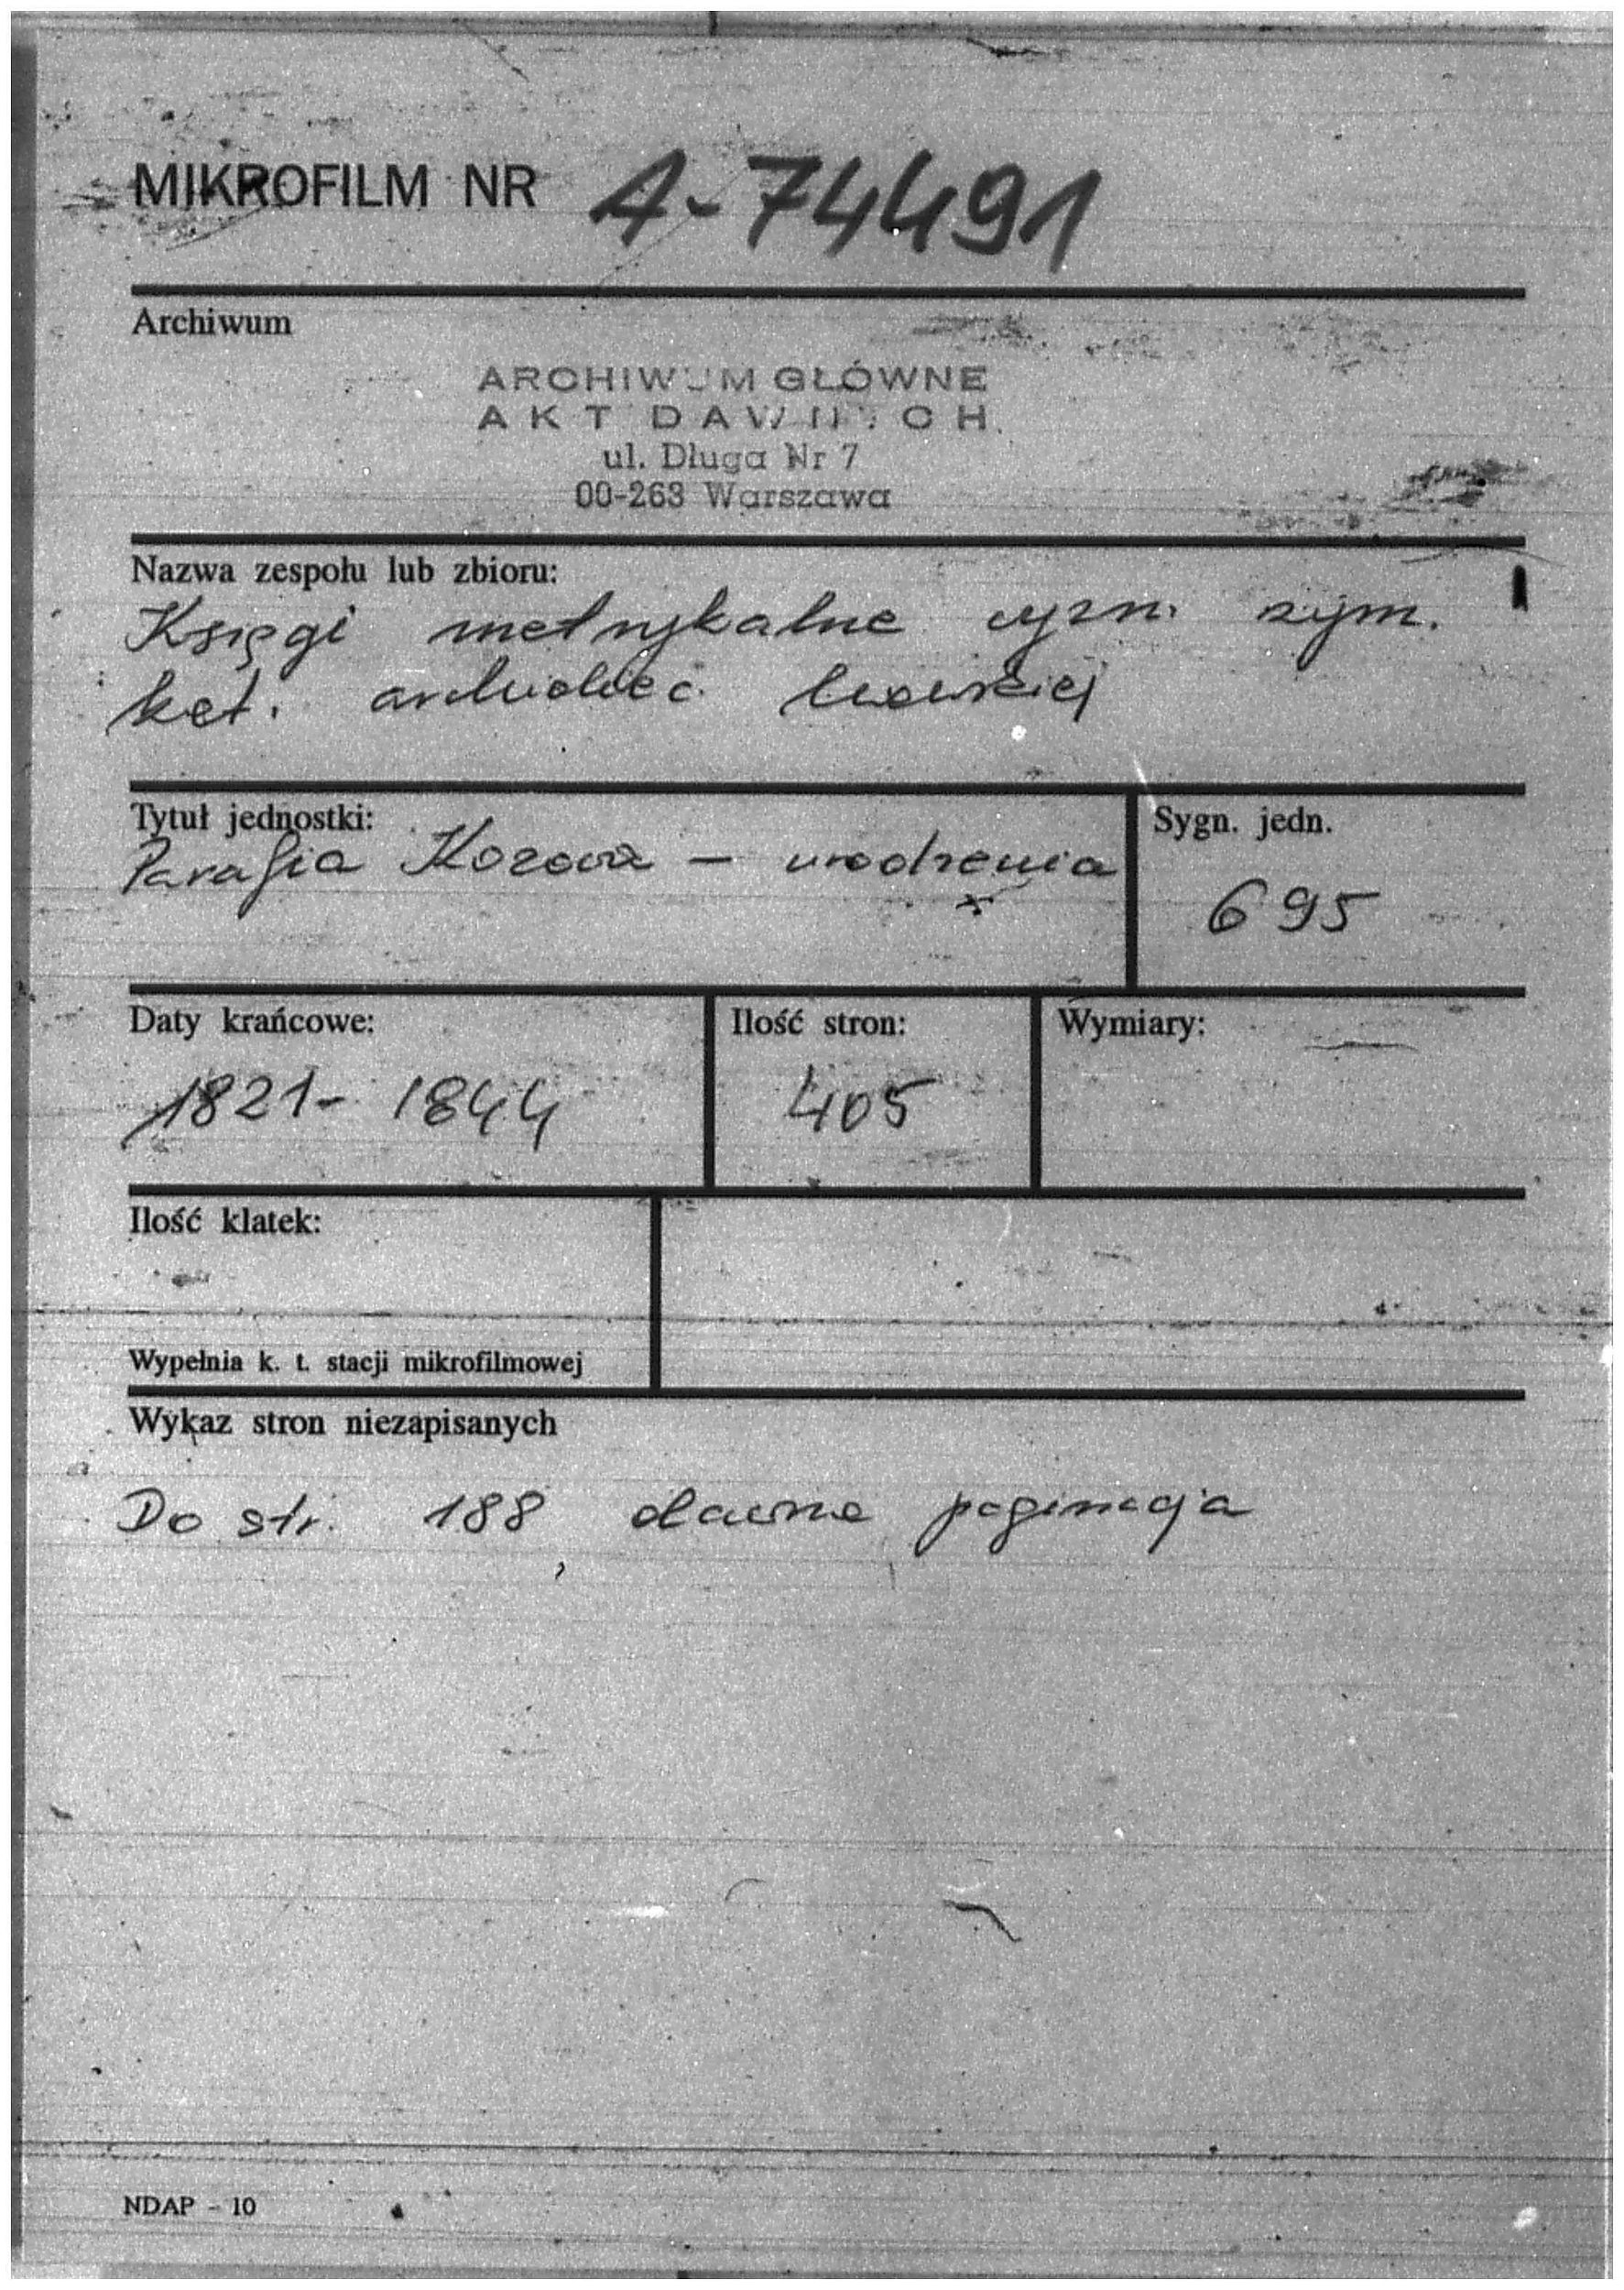 MIKROFILM NR A-74491
Archiwum
ARCHIWUM GŁÓWNE
AKT DAWNYCH
ul. Długa Nr 7
00-263 Warszawa
Nazwa zespołu lub zbioru:
Księgi metrykalne wyzn. rzym.
kat. archidiec. lwowskiej
Tytuł jednostki:
Sygn. jedn.
Parafia Kozowa - urodzenia
695
Daty krańcowe:
Ilość stron:
Wymiary:
1821- 1844
405
Ilość klatek:
Wypełnia k. t. stacji mikrofilmowej
Wykaz stron niezapisanych
Do str. 188, dawna paginacja
NDAP - 10